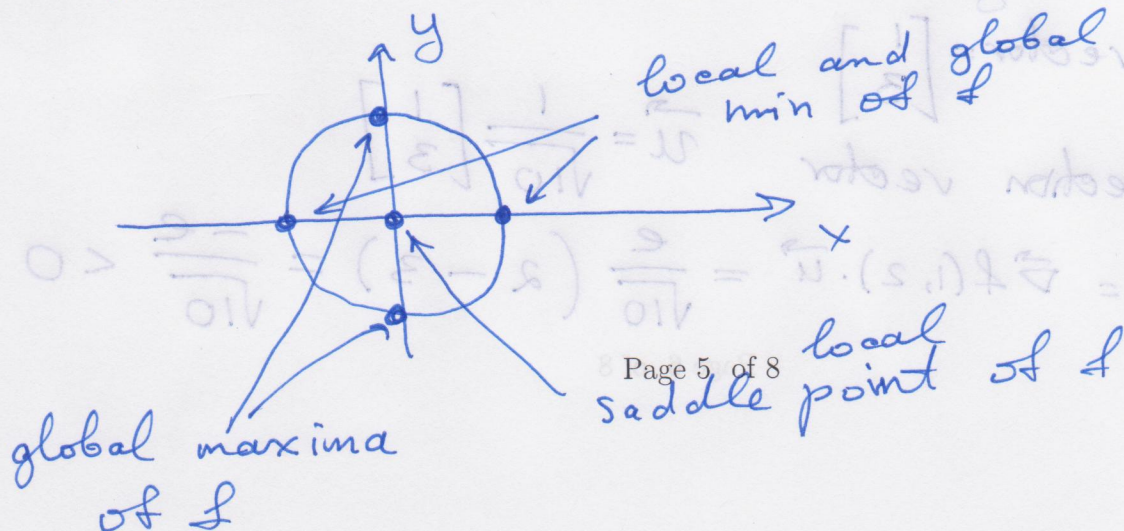 y
local and global
min of f
x
local
Page 5 of 8
saddle point of f
global maxima
of f